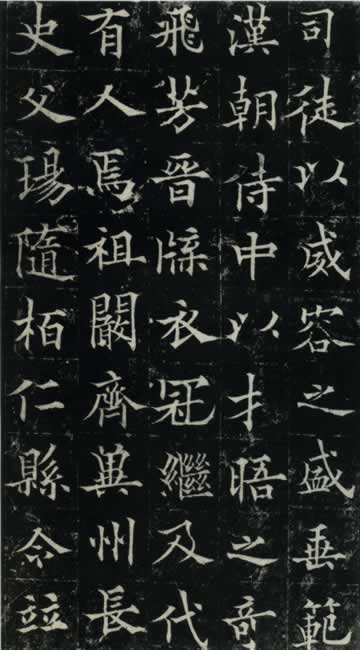 司徒以威容之盛垂範
漢朝侍中以才晤之奇
飛芳晉牒衣冠繼及代
有人焉祖闞齊兾州長
史父瑒隨栢仁縣令竝